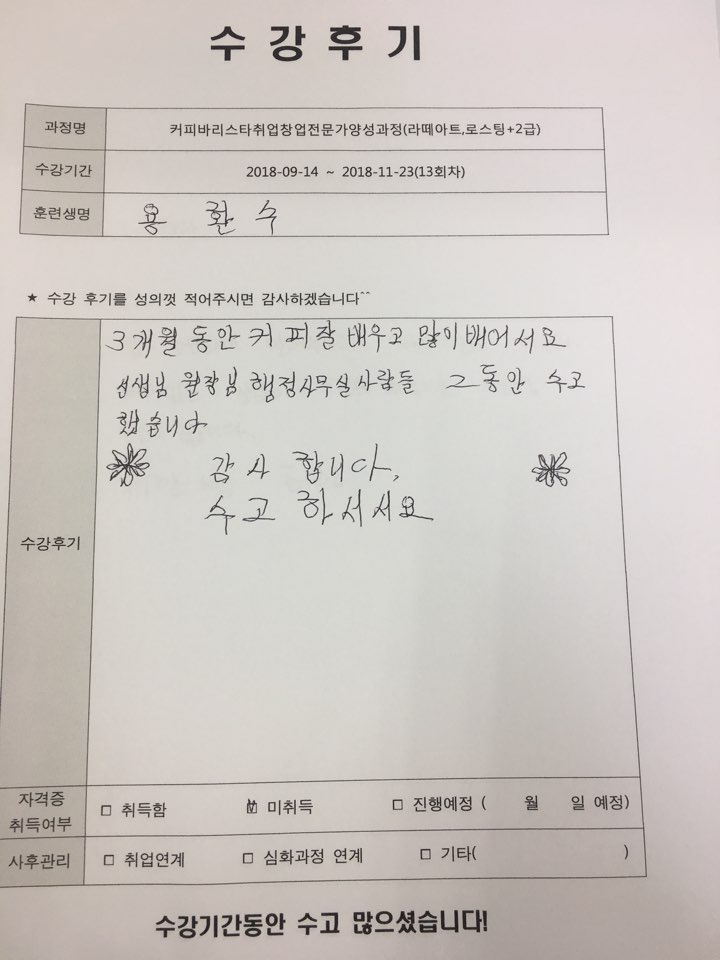 수강후기
과정명 커피바리스타취업창업전문가양성과정(라떼아트,로스팅+2급)
수강기간 2018-09-14 ~ 2018-11-23(13회차)
훈련생명 용환수
★ 수강 후기를 성의껏 적어주시면 감사하겠습니다^^
3개월 동안 커피잘 배우고 많이배어서요
선생님 원장님 행정사무실사람들 그동안 수고
했습니다
감사 합니다,
수고 하서서요
수강후기
자격증
취득여부 □ 취득함 ☑ 미취득 □ 진행예정 ( 월 일 예정)
사후관리 □ 취업연계 □ 심화과정 연계 □ 기타( )
수강기간동안 수고 많으셨습니다!